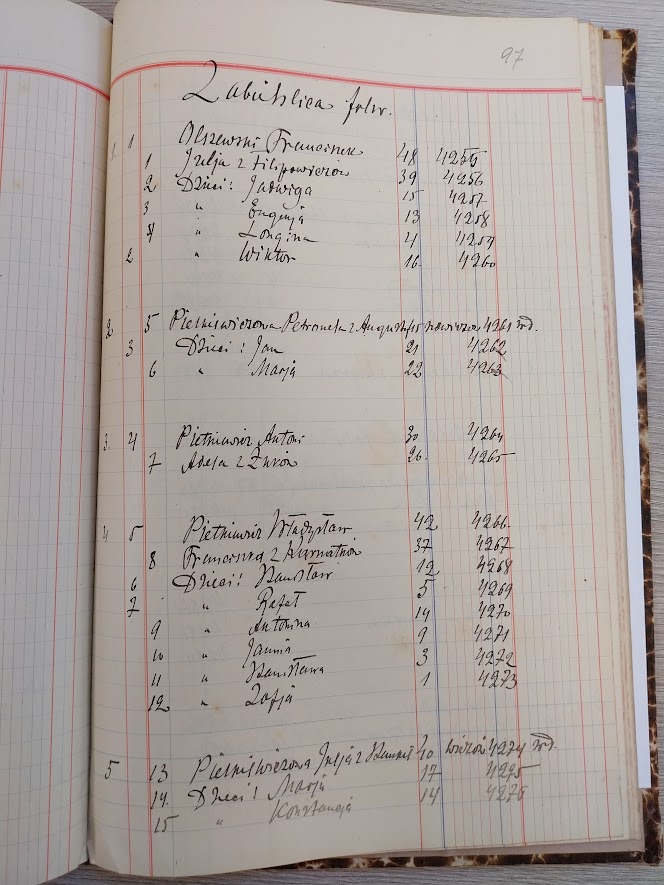 97
Zabichlica folw.
1. 1 Olszewski Franciszek 48 4255
1 Julja z Filipowiczów 39 4256
2 Dzieci: Jadwiga 15 4257
3 " Eugenja 13 4258
4 " Longina 4 4259
2 " Wiktor 16 4260
2 5 Pietkiewiczowa Petronela z Augustynowiczów 45 4261 wd.
3 Dzieci: Jan 21 4262
6 " Marja 22 4263
3. 4 Pietkiewicz Antoni 30 4264
7 Adela z Żuków 26 4265
4 5 Pietkiewicz Władysław 42 4266
8 Franciszka z 37 4267
6 Dzieci: Stanisław 12 4268
7 " Rafał 5 4269
9 " Antonina 14 4270
10 " Janina 9 4271
11 " Stanisława 3 4272
12 " Zofja 1 4273
5 13 Pietkiewiczowa Julja z 40 4274 wd.
14. Dzieci: Marja 17 4275
15 " Konstancja 14 4276